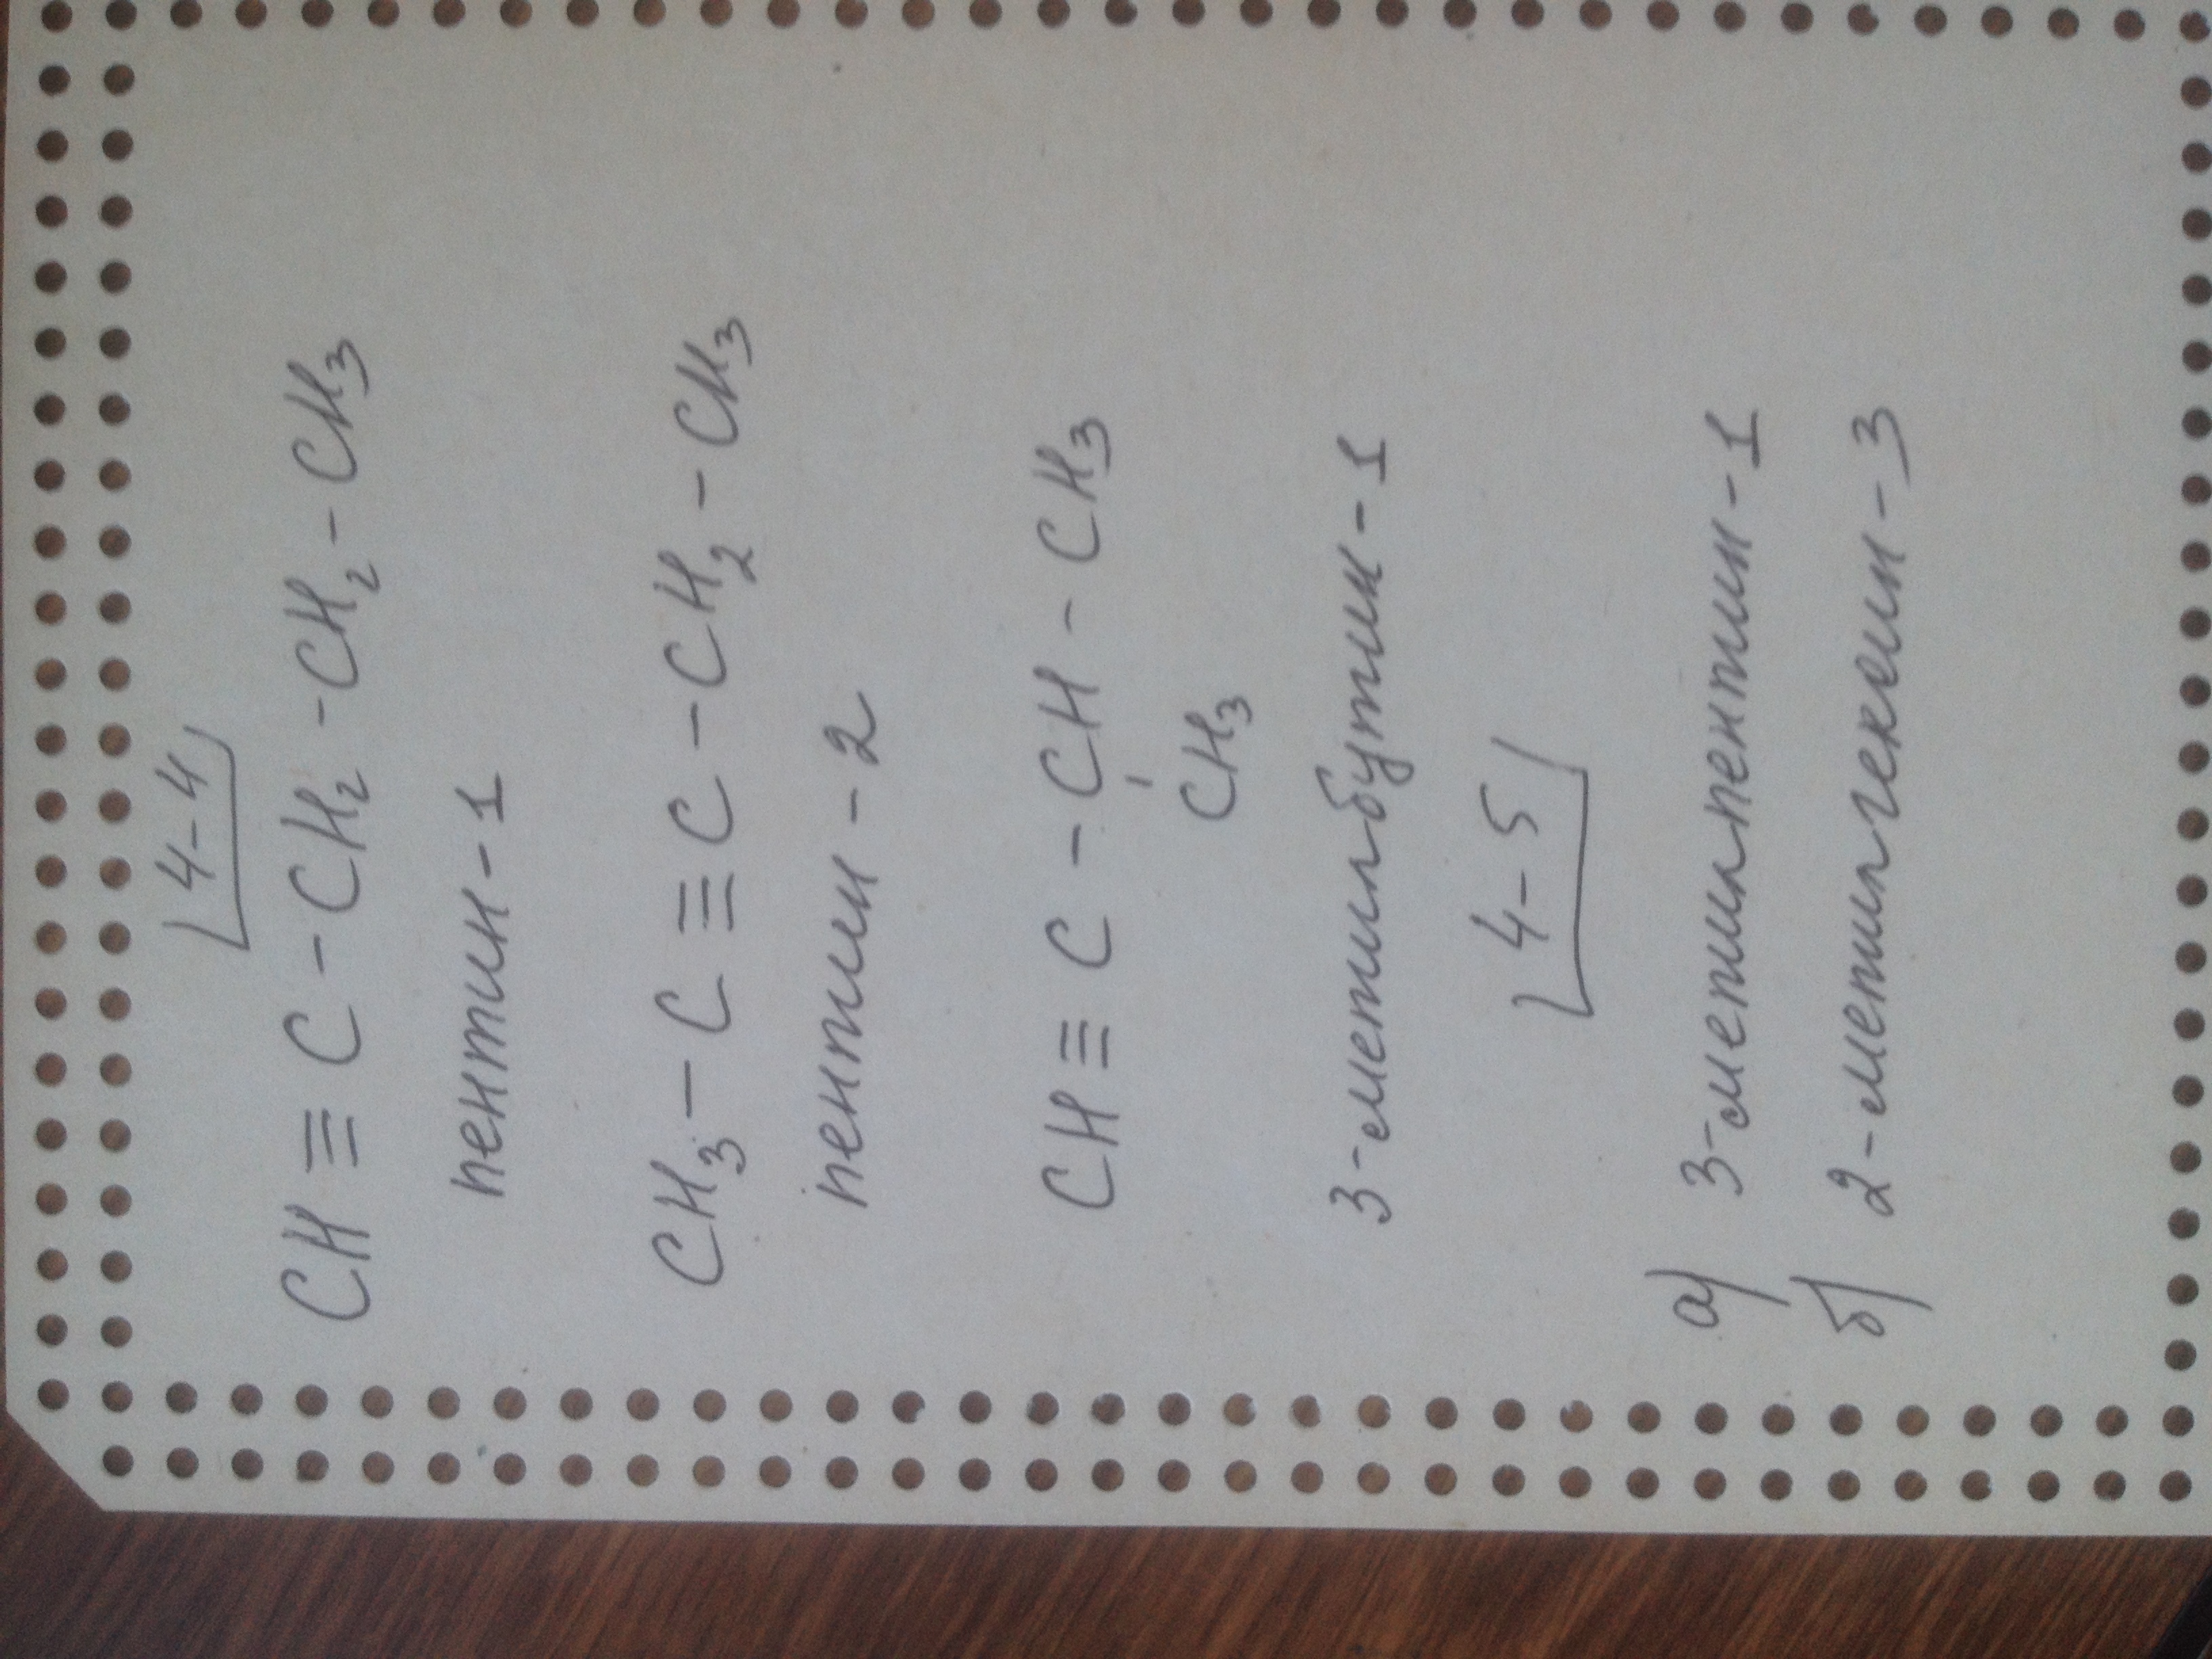 4-4
CH ≡ C - CH₂ - CH₂ - CH₃
пентин-1
CH₃ - C ≡ C - CH₂ - CH₃
пентин-2
CH ≡ C - CH - CH₃
CH₃
3-метилбутин-1
4-5
а) 3-метилпентин-1
б) 2-метилгексин-3